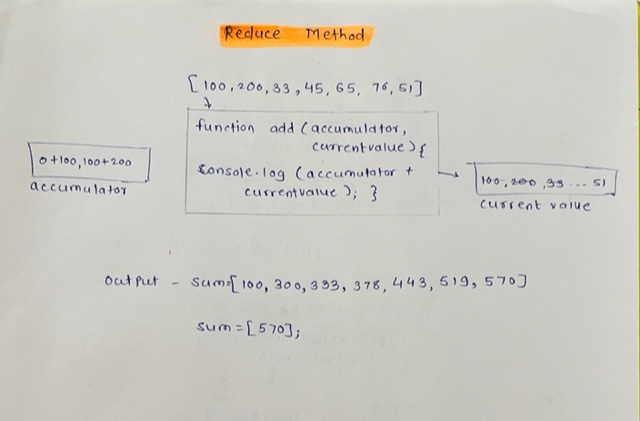 Reduce Method
[100,200,33,45,65, 76,51]
function add (accumulator,
currentvalue){
console.log (accumulator +
currentvalue); }
0+100,100+200
accumulator
100,200,33...51
current value
output - sum=[100,300,333,378,443,519,570]
sum=[570];